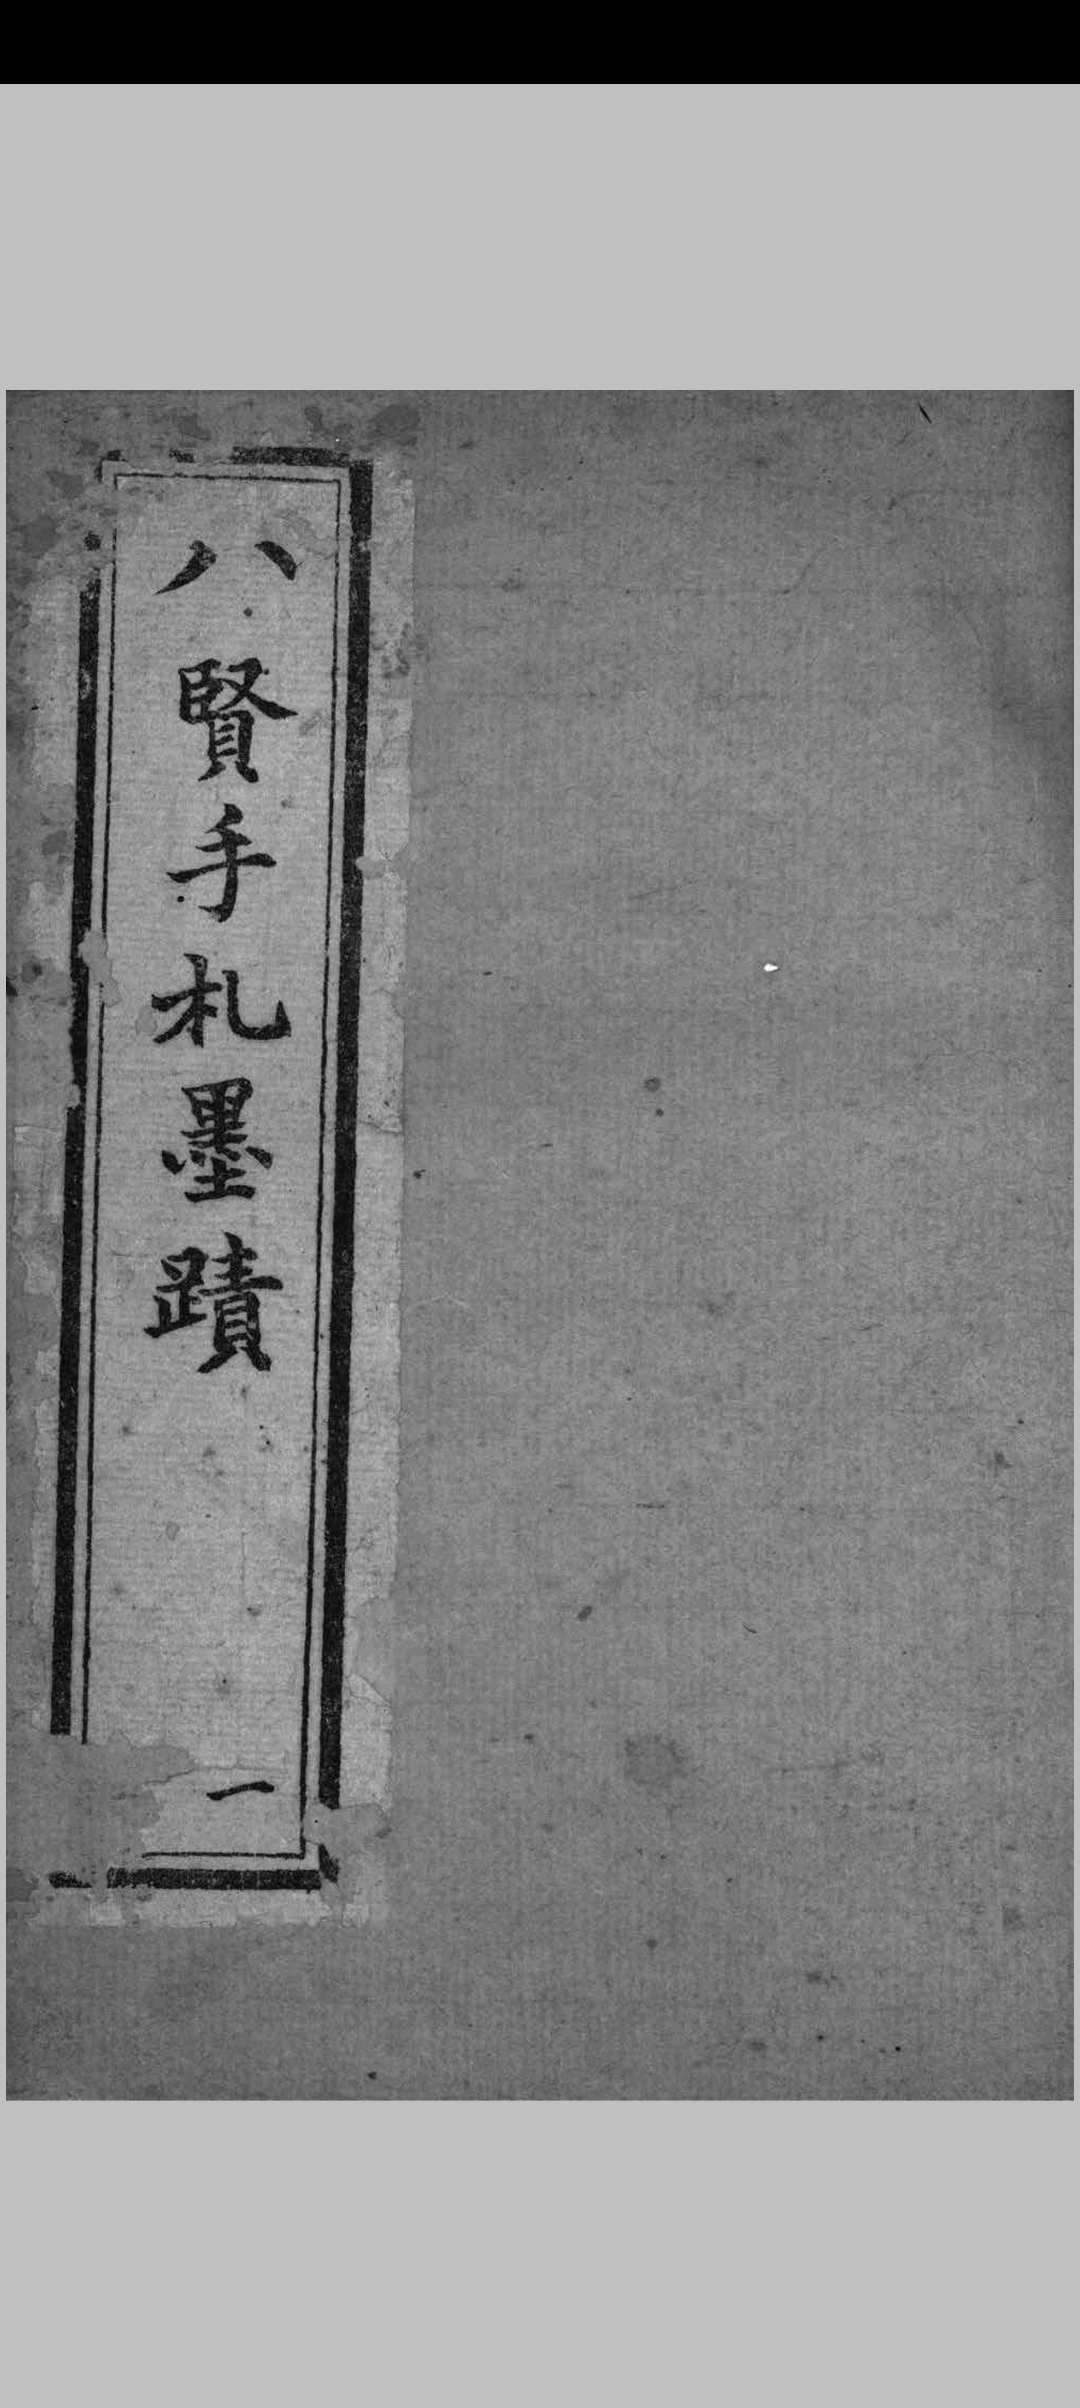 八賢手札墨蹟
一